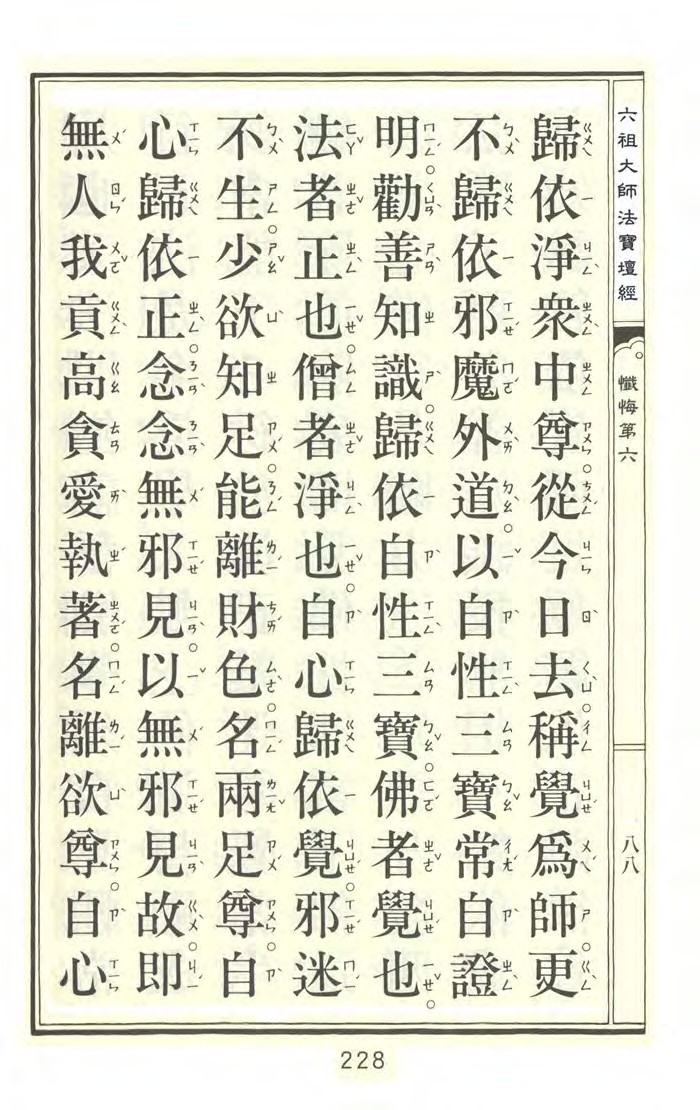 六祖大師法寶壇經 懺悔第六 八八
歸依淨衆中尊從今日去稱覺爲師更
不歸依邪魔外道以自性三寶常自證
明勸善知識歸依自性三寶佛者覺也
法者正也僧者淨也自心歸依覺邪迷
不生少欲知足能離財色名兩足尊自
心歸依正念念無邪見以無邪見故即
無人我貢高貪愛執著名離欲尊自心
228